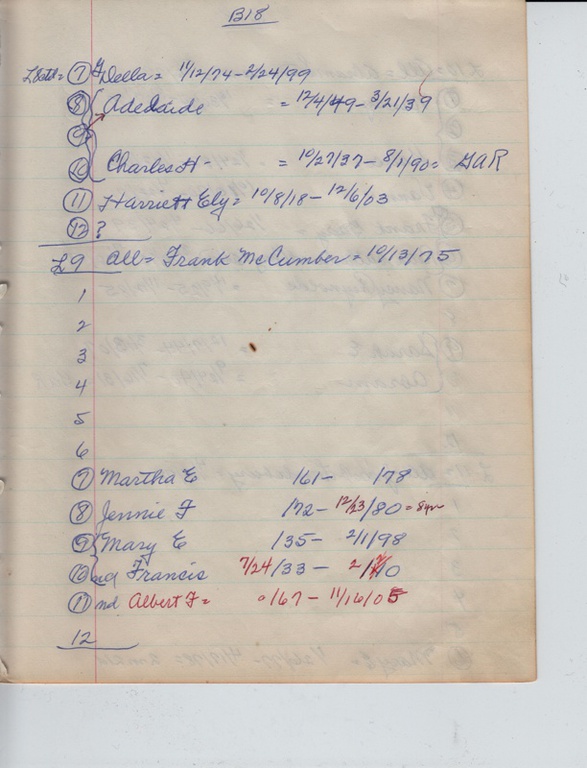 B18
⑦ Della = 11/12/74 - 2/24/99
⑧ Adelaide = 12/4/49 - 3/21/39
⑨
⑩ Charles H - = 10/27/37 - 8/1/90 = GAR
⑪ Harriett Ely = 10/8/18 - 12/6/03
⑫ ?
L9 All = Frank McCumber = 10/13/75
1
2
3
4
5
6
⑦ Martha E /61 - /78
⑧ Jennie F /72 - 12/23/80 = 8yr
⑨ Mary E /35 - 2/1/98
⑩ Francis 7/24/33 - 2/ /10
⑪ nd Albert F = 0/67 - 11/16/05
12